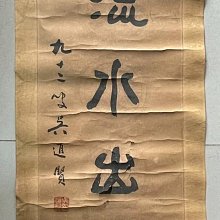 流水出
九十二叟吳進賢